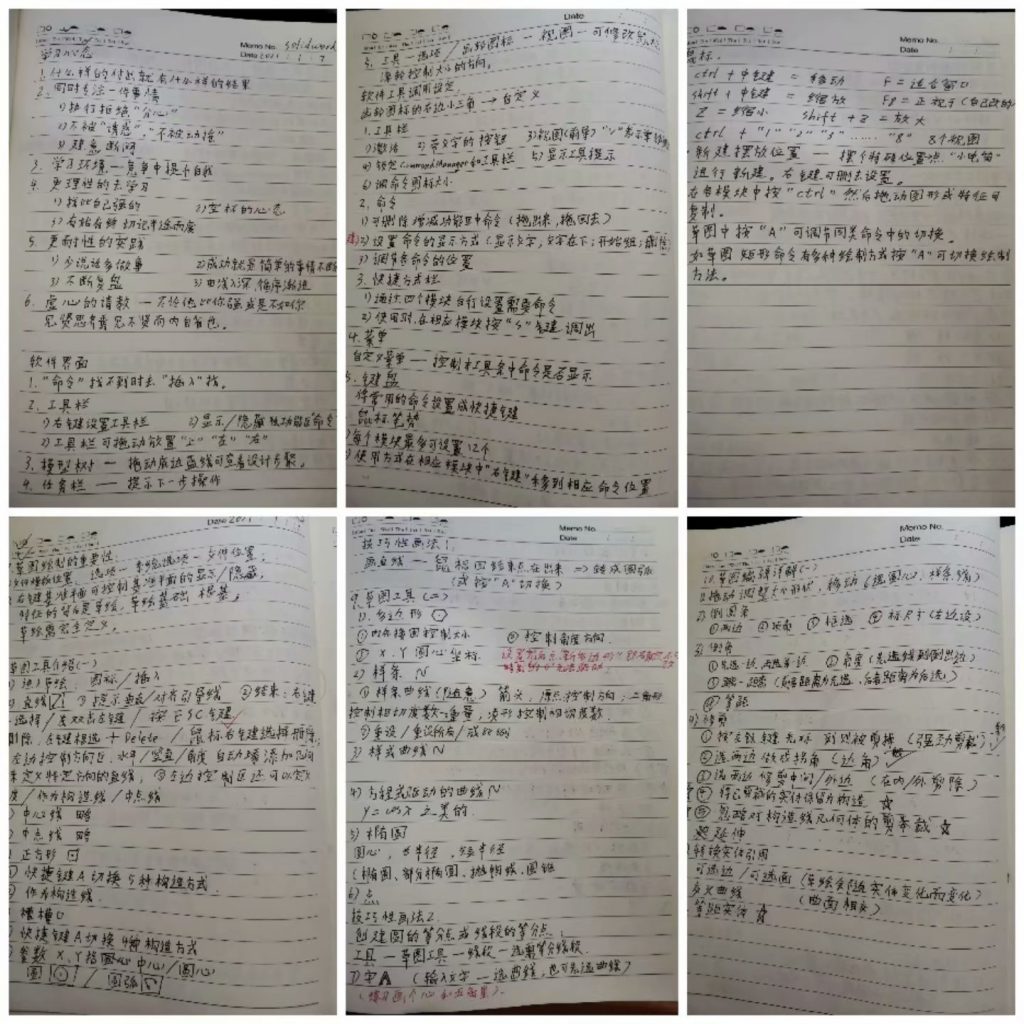 Memo No. solidword
学习心态
Date 2021
1. 什么样的付出就有什么样的结果
2. 同时专注一件事情
1) 执行拒绝"分心"
2) 不被"诱惑", "不被动摇"
3) 建急断网
3. 学习环境—竞争中提升自我
4. 更理性的去学习
1) 找比自己强的 2) 空杯的心态
3) 有始有终 切记半途而废
5. 更耐性的实践
1) 少说话多做事 2) 成功就是简单的事情不断
3) 不断复盘 3) 由浅入深, 循序渐进
6. 虚心的请教 — 不论他比你强或是不如你
见贤思齐焉见不贤而内自省也。
软件界面
1. "命令"找不到时去"插入"找。
2. 工具栏
1) 右键设置工具栏 2) 显示/隐藏 独功能区命令
2) 工具栏可拖动放置"上" "左" "右"
3. 模型树 — 拖动底边蓝线可查看设计步骤。
4. 任务栏 — 提示下一步操作
Date
3. 工具 — 选项 / 齿轮图标 — 视图 — 可修改鼠标
滚轮控制大小的方向。
软件工具调用设定
齿轮图标的右边小三角 → 自定义
1. 工具栏
1) 激活 2) 带文字的按钮 3) 视图(前导) "√"表示
4) 锁定CommandManager和工具栏 5) 显示工具提示
6) 调命令图标大小
2. 命令
1) 可删性增减功能区中命令 (拖出来, 拖回去)
2) 设置命令的显示方式 (显示文字, 文字在下; 开始组;
3) 调节各命令的位置
3. 快捷方式栏
1) 通过四个模块自行设置需要命令
2) 使用时, 在相应模块按"S"键 调出
4. 菜单
自定义菜单 — 控制栏工具条中命令是否显示
5. 键盘
将常用的命令设置成快捷键
鼠标笔势
每个模块最多可设置12个
使用方式在相应模块中"右键"移到相应命令位置
Memo No.
Date
鼠标.
ctrl + 中键 = 移动 F = 适合窗口
shift + 中键 = 缩放 F8 = 正视于 (自己改的)
Z = 缩小 shift + z = 放大
ctrl + "1" "2" "3" …… "8" 8个视图
新建摆放位置 — 摆个精确位置点"小电筒"
进行新建。右键可删去设置。
在各模块中按"ctrl"然后拖动图形或特征可
复制。
草图中按"A"可调节同类命令中的切换。
如草图 矩形命令有多种绘制方式按"A"可切换绘制
方法。
Date 2021
草图绘制的重要性.
选项 — 系统选项 — 文件位置.
右键基准平面可控制基准平面的显示/隐藏,
特征的背后是草绘, 草绘基础 根基,
草绘需完全定义。
草图工具介绍(一)
1) 进入草绘: 图标/插入
直线 ① 提示垂直/对齐引导线 ② 结束: 右键
选择/左双击左键/按ESC键
删除: 左键框选 + Delete / 鼠标右键选择删除;
左边控制方向区, 水平/竖直/角度 自动增添几何
来定义特定方向的直线, ③ 左边控制区还可以定义
度/作为构造线/中点线
中心线 略
中点线 略
正方形
快捷键A切换5种构造方式
作为构造线.
槽
快捷键A切换 4种构造方式
参数 X, Y指圆心 中心/圆心
圆 ⊙ / 圆弧
Memo No.
Date
技巧性画法1
画直线 — 鼠标回结束点在出来 => 转成圆弧
(或按"A"切换)
9. 草图工具(二)
1) 多边形
① 内外接圆控制大小 ② 控制角度方向.
③ X, Y圆心坐标.
2) 样条 N
① 样条曲线 箭头, 原点控制方向; 二角形
控制相切度数+重量, 菱形控制相切度数.
② 重设/重设所有/成比例
3) 样式曲线 N
4) 方程式驱动的曲线 N
y = cosx 之美的
5) 椭圆
圆心, 长半径, 短半径
(椭圆、部分椭圆、抛物线、圆锥
6) 点
技巧性画法2.
创建圆的等分点或线段的等分点:
工具 — 草图工具 — 线段 — 选需等分线段.
7) 字A (输入文字 — 选曲线, 也可先选曲线)
(练习画个心和五角星).
Memo No.
Date
10. 草图编辑详解(一)
1) 拖动 调整大小形状, 移动 (选圆心, 样条线)
2) 倒圆角
① 两边 ② 顶点 ③ 框选 ④ 标尺寸(左边设)
3) 倒角
② 角度 (先选线到倒出边)
③ 距-距离
④ 等距
4) 剪裁
(强劲剪裁)
② 选两边做成拐角 (边角) √
③ 选两边 修剪中间/外边 (在内/外剪除)
④ 将已剪裁的实体保留为构造 ☆
⑤ 忽略对构造线几何体的剪裁 ☆
延伸
转换实体引用
可选边/可选面 (草绘会随实体变化而变化)
交叉曲线 (曲面相交)
等距实体 ☆